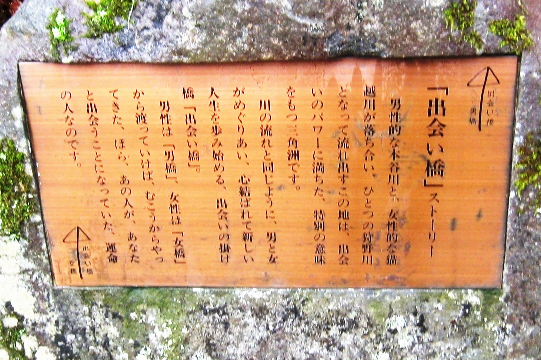 「出会い橋」ストーリー
男性的な本谷川と、女性的な猫
越川が落ち合い、ひとつの狩野川
となって流れ出すこの地は、出会
いのパワーに満ちた、特別の意味
をもつ三角洲です。
川の流れと同じように、男と女
がめぐりあい、心結ばれて新しい
人生を歩み始める、出会いの掛け
橋「出会い橋」。
男性は「男橋」、女性は「女橋」
から渡っていけば、むこうからやっ
てきた、ほら、あの人が、あなた
と出会うことになっていた、運命
の人なのです。
出会い橋
男橋
出会い橋
女橋